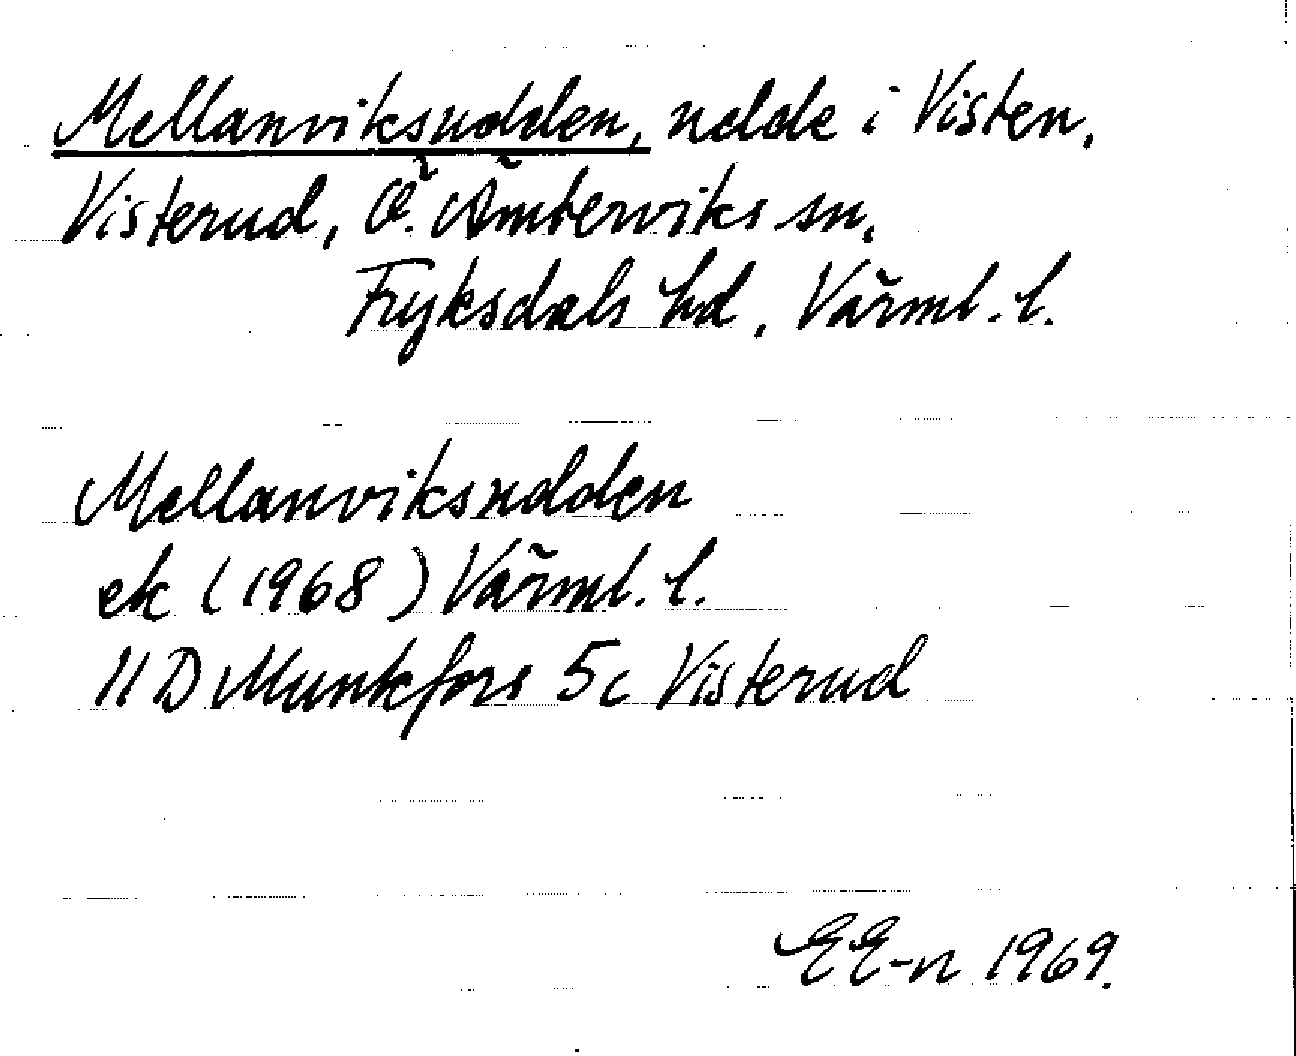 Mellanviksudden, udde i Visten,
Visterud, Ö. Ämterviks sn,
Fryksdals hd, Värml. l.
Mellanviksudden
ek (1968) Värml. l.
11 D Munkfors 5c Visterud
EE-n 1969.